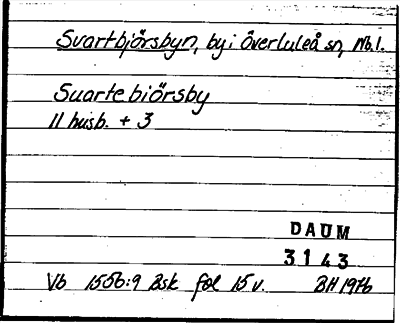 Svartbjörsbyn, by i Överluleå sn, Nb.l.
Suarte biörsby
11 husb. + 3
DAUM
3143
Vb 1556:9 Bsk fol 15 v. BH 1976